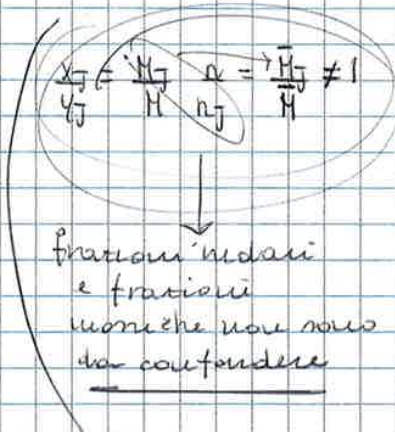 x_J / y_J = M_J / M · n / n_J = M̄_J / M̄ ≠ 1
frazioni molari
e frazioni
moniche non sono
da confondere